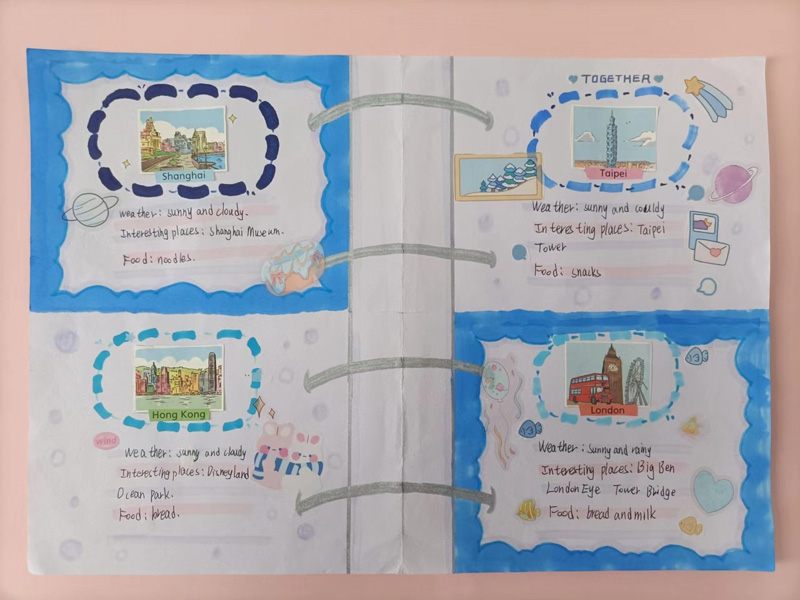 Shanghai
Weather: sunny and cloudy.
Interesting places: Shanghai Museum.
Food: noodles.
TOGETHER
Taipei
Weather: sunny and couldy
Interesting places: Taipei
Tower
Food: snacks
Hong Kong
wind
Weather: sunny and cloudy
Interesting places: Disneyland
Ocean park.
Food: bread.
London
Weather: sunny and rainy
Interesting places: Big Ben
London Eye Tower Bridge
Food: bread and milk